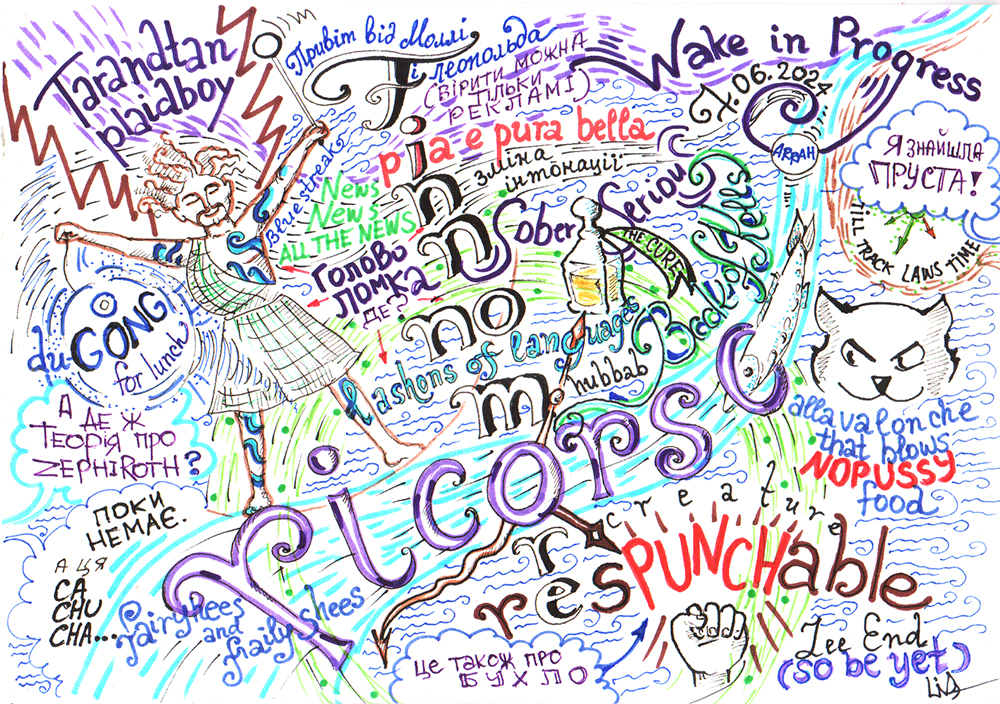 Tarandtan
plaidboy
Привіт від Моллі
і Леопольда
(вірити можна
тільки
рекламі)
Wake in Progress
7.06.2024
ARRAH
Я знайшла
Пруста!
TILL TRACK LAWS TIME
pia e pura bella
зміна
інтонації
Bluestreak
News
News
ALL THE NEWS
Finn
no
more
Sober Serious
THE CURE
Голово
ломка
де?
lashons of languages
duGONG
for lunch
А де ж
теорія про
ZEPHIROTH?
Поки
немає.
А ця
CA
CHU
CHA...
Ricorso
allavalonche
that blows
NOPUSSY
food
creature
resPUNCHable
Fairyhees
and
frailyshees
це також про
бухло
Zee End
(so be yet)